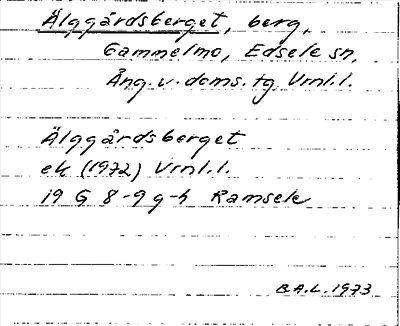 Älggårdsberget, berg,
Gammelmo, Edsele sn,
Ång. v. doms. tg Vrnl.l.
Älggårdsberget
ek (1972) Vrnl.l.
19 G 8-9 g-h Ramsele
B.A.L. 1973